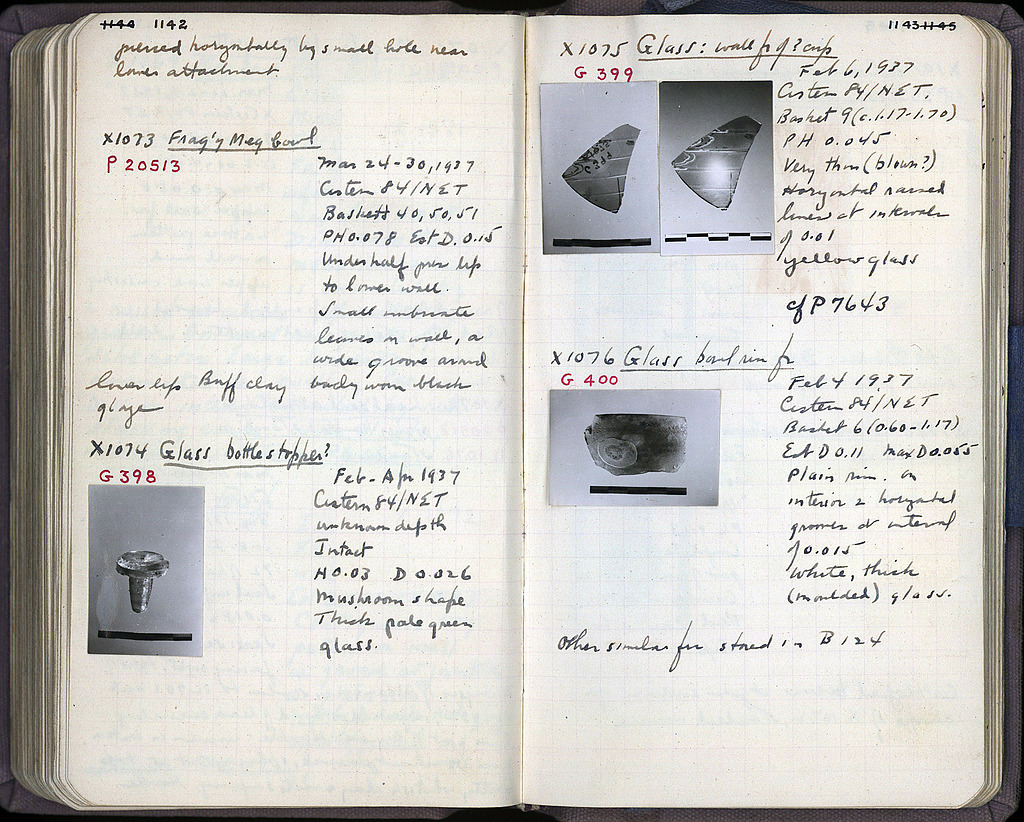 1144 1142
pierced horizontally by small hole near
lower attachment
X1073 Frag'y Meg bowl
P 20513
Mar 24-30, 1937
Cistern 84/NET
Baskets 40, 50, 51
PH 0.078 Est D. 0.15
Under half pres lip
to lower wall.
Small imbricate
leaves on wall, a
wide groove around
lower lip Buff clay badly worn black
glaze
X1074 Glass bottle stopper?
G 398
Feb-Apr 1937
Cistern 84/NET
unknown depth
Intact
H 0.03 D 0.026
Mushroom shape
Thick pale green
glass.
1143 1145
X1075 Glass: wall fr of ? cup
G 399
Feb 6, 1937
Cistern 84/NET.
Basket 9 (c. 1.17-1.70)
PH 0.045
Very thin (blown?)
Horizontal raised
lines at intervals
of 0.01
yellow glass
cf P 7643
X1076 Glass bowl rim fr
G 400
Feb 4 1937
Cistern 84/NET
Basket 6 (0.60-1.17)
Est D 0.11 max D 0.055
Plain rim. on
interior 2 horizontal
grooves at interval
of 0.015
White, thick
(moulded) glass.
Other similar frr stored in B 124